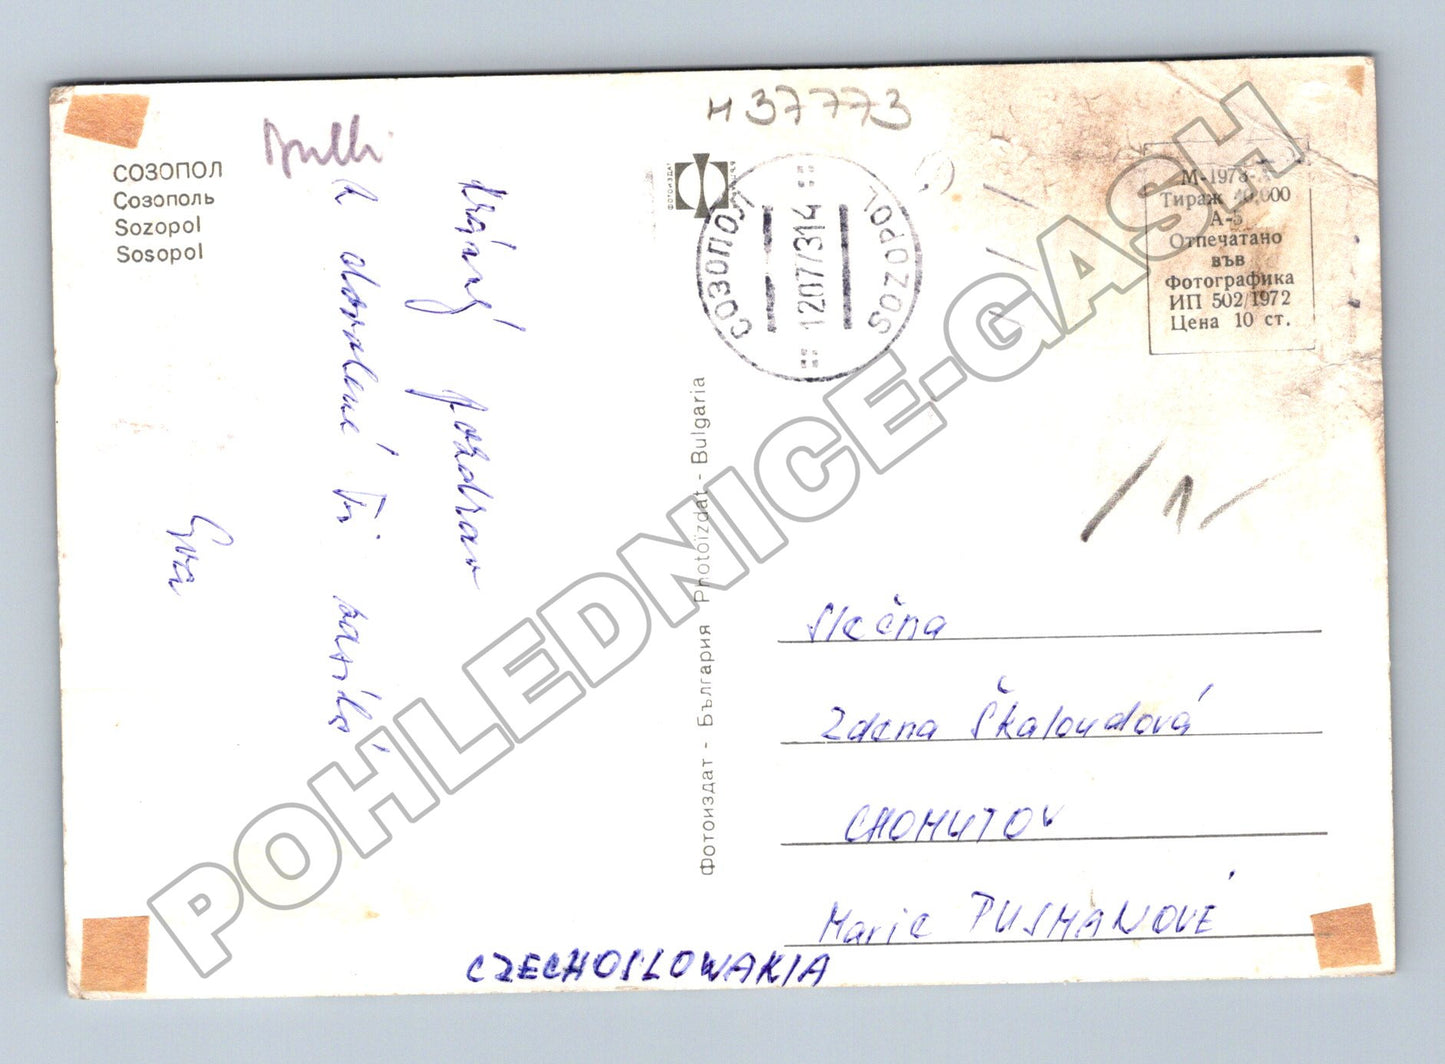 СОЗОПОЛ
Созополь
Sozopol
Sosopol
Krásný pozdrav
z dovolené Ti zasílá
Eva
Фотоиздат - България Photoizdat - Bulgaria
M 37773
ФОТОИЗДАТ
СОЗОПОЛ
12077314
SOZOPOL
М-1978-А
Тираж 40,000
А-5
Отпечатано
във
Фотографика
ИП 502/1972
Цена 10 ст.
/1-
Slečna
Zdena Škaloudová
CHOMUTOV
Marie PUJMANOVÉ
CZECHOSLOWAKIA
POHLEDNICE-GASH